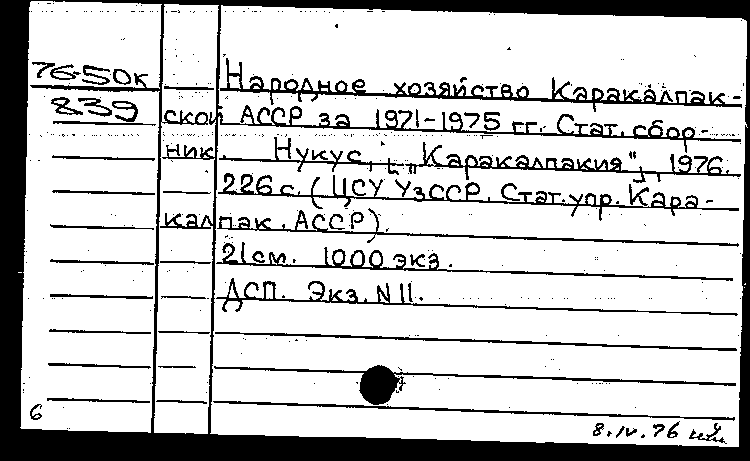 76-50к Народное хозяйство Каракалпак-
839 ской АССР за 1971-1975 гг. Стат. сбор-
ник. Нукус, [„Каракалпакия"], 1976.
226 с. (ЦСУ УзССР. Стат. упр. Кара-
калпак. АССР).
21 см. 1000 экз.
ДСП. Экз. N 11.
6
8.IV.76